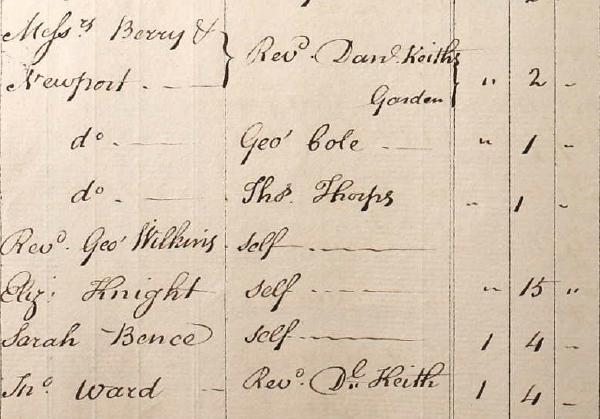 Messrs Berry & } Revd. Danl. Keiths }
Newport . — Garden } " 2 -
do . — Geo' Cole — " 1 -
do . — Thos. Thorps - 1 -
Revd. Geo' Wilkins self . —
Eliz: Knight self . — " 15 "
Sarah Bence self . — 1 4 -
Jno. Ward — Revd. Dl. Keith 1 4 -